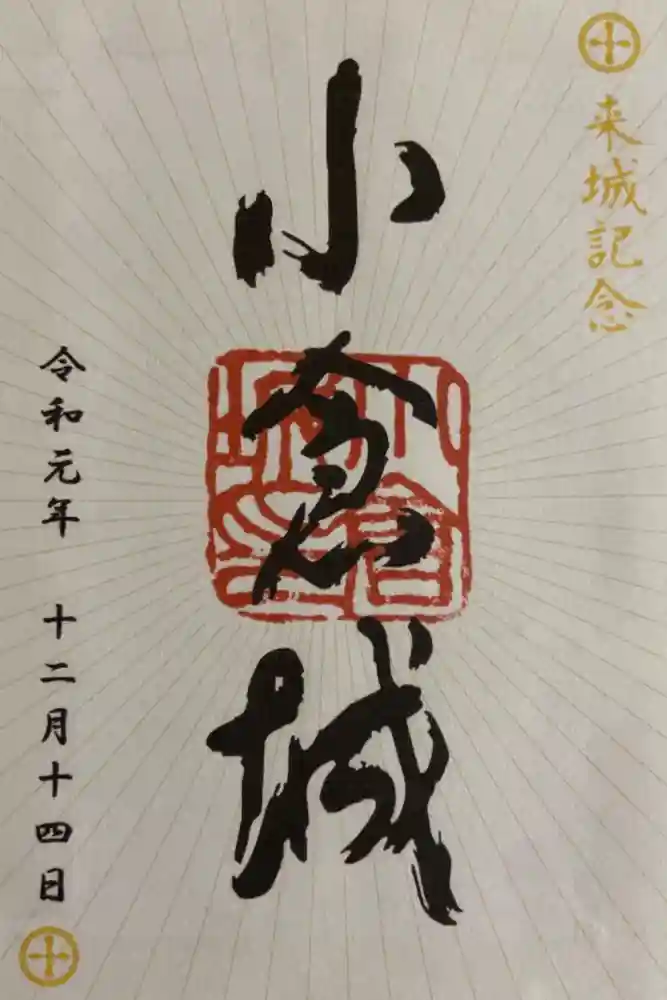 来城記念
小倉城
小倉城
令和元年 十二月十四日